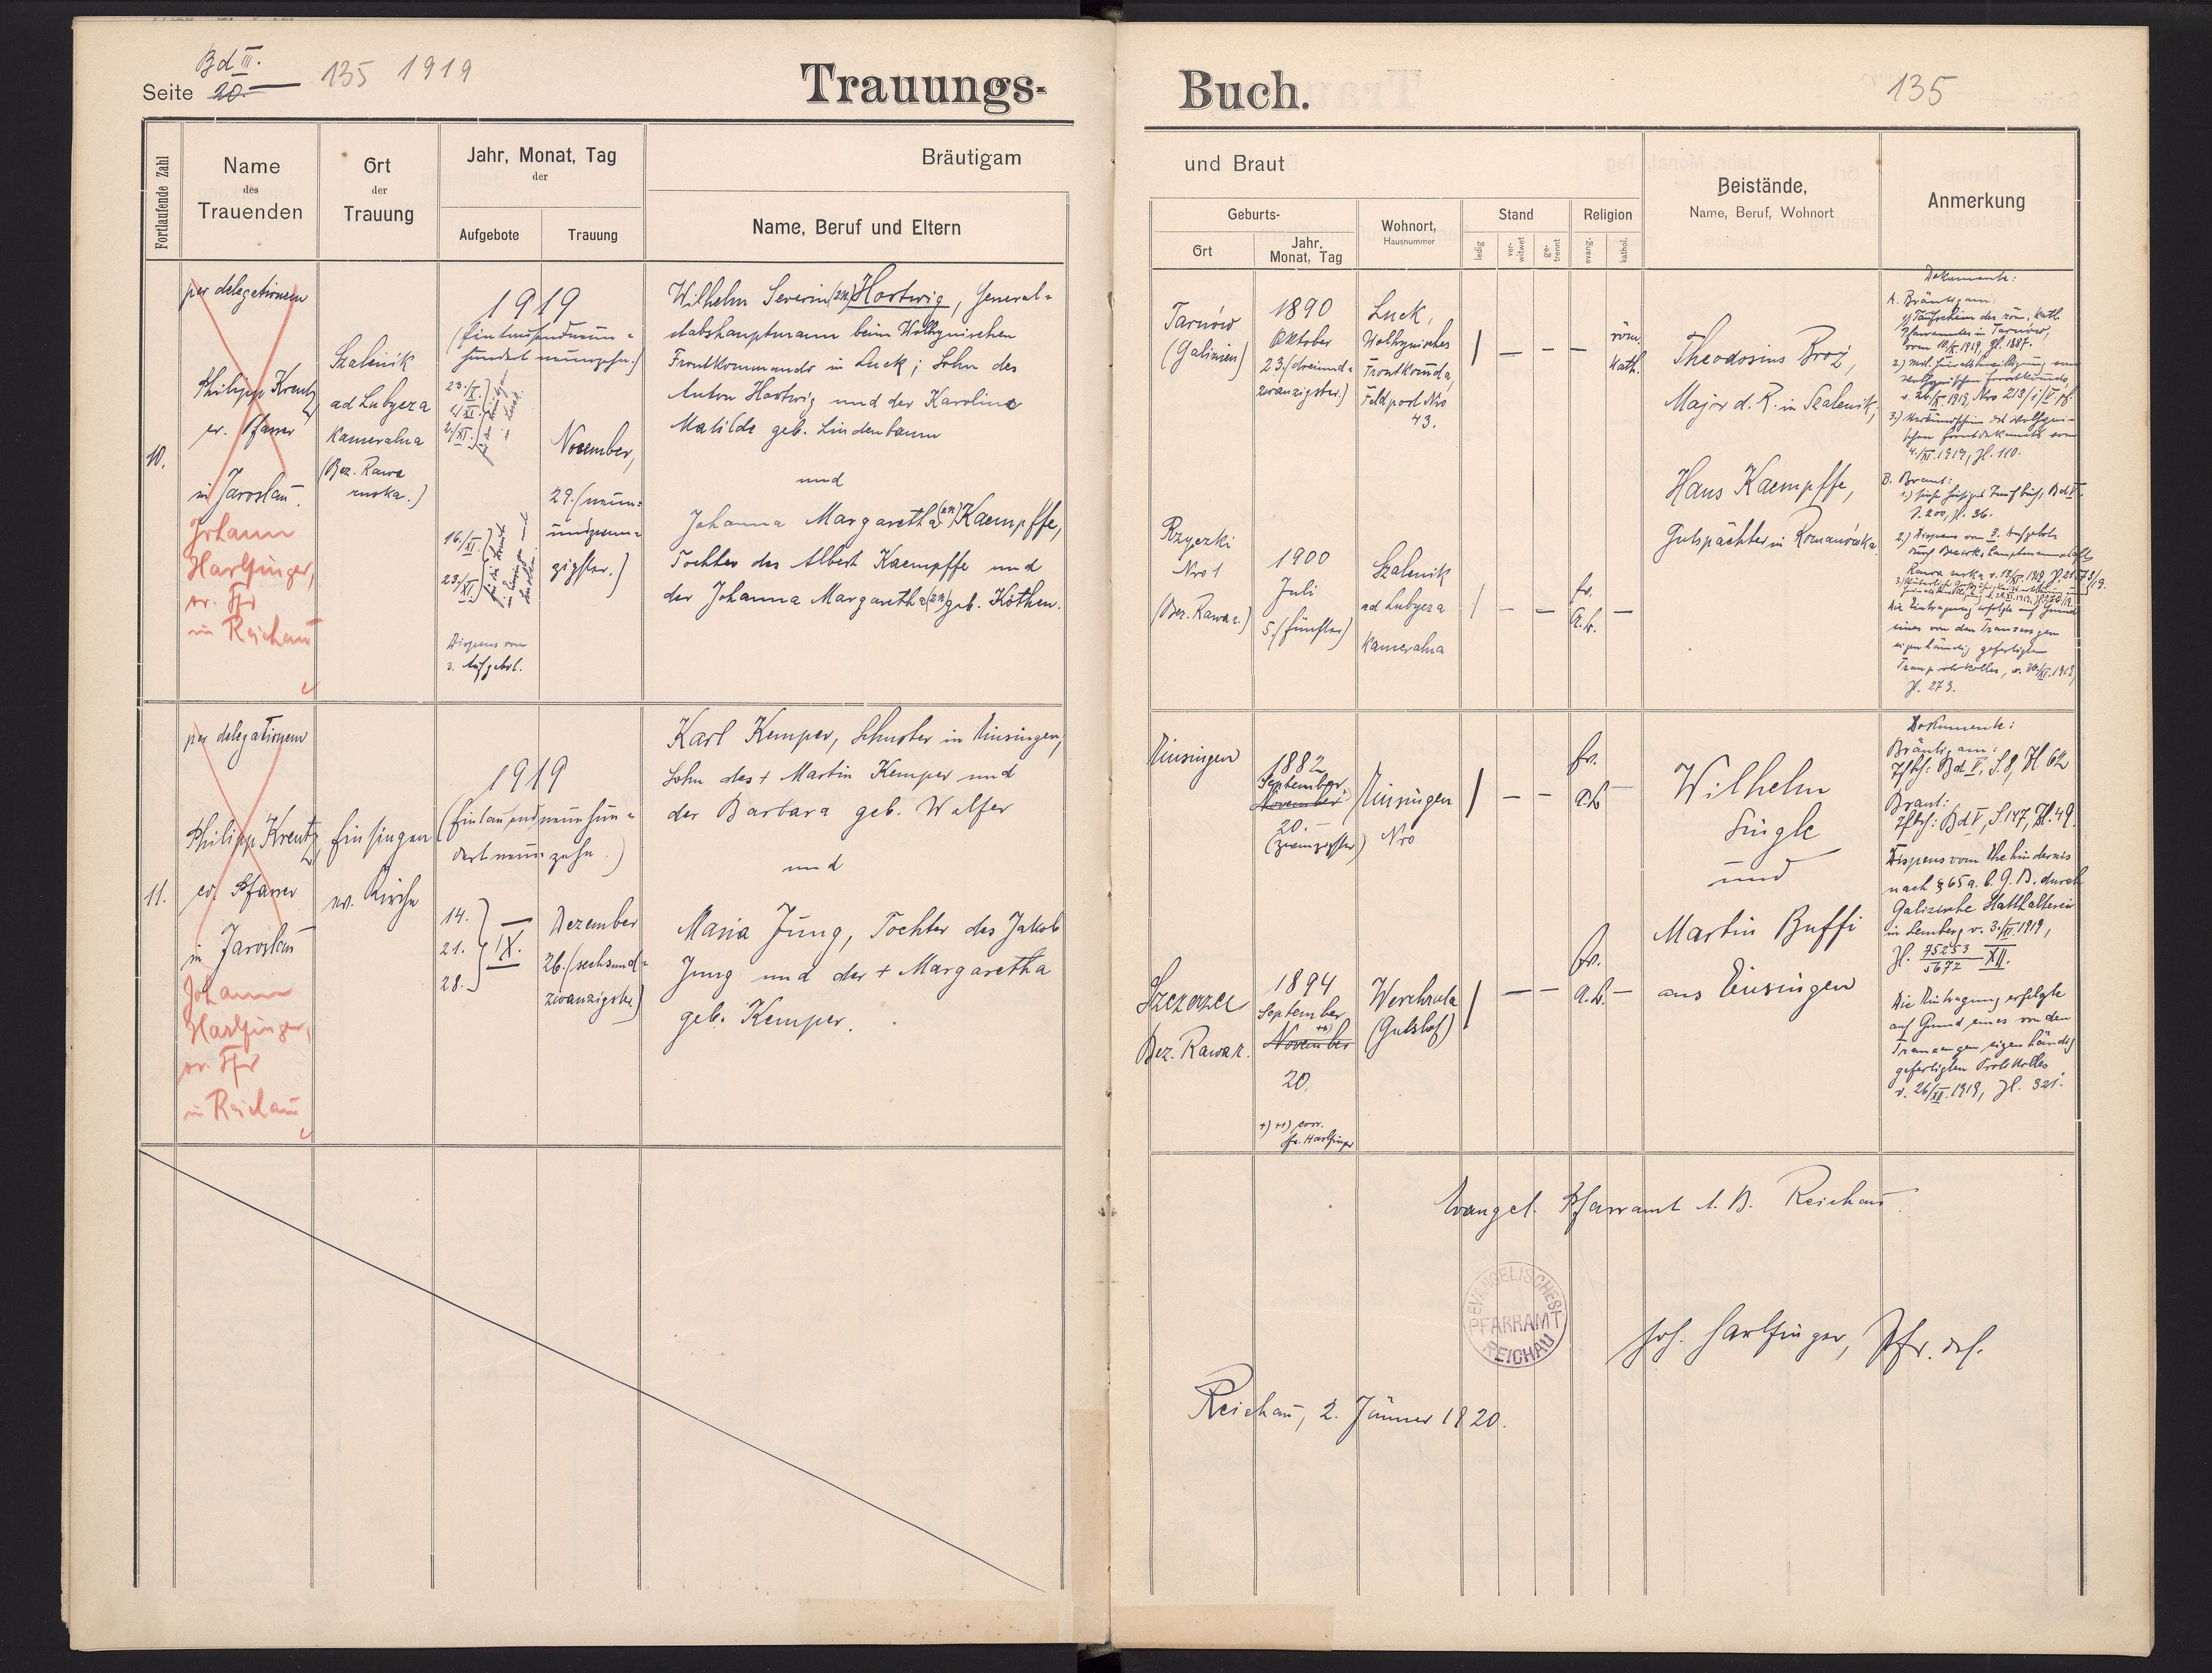 Bd III.
Seite 20.
135 1919
Trauungs-
Buch.
135
Fortlaufende Zahl
Name
des
Trauenden
Ort
der
Trauung
Jahr, Monat, Tag
der
Aufgebote
Trauung
Bräutigam
Name, Beruf und Eltern
und Braut
Geburts-
Ort
Jahr,
Monat, Tag
Wohnort,
Hausnummer
Stand
ledig
ver-
witwet
ge-
trennt
Religion
evang.
kathol.
Beistände,
Name, Beruf, Wohnort
Anmerkung
10.
per delegationem
Philipp Kreutz,
ev. Pfarrer
in Jaroslau.
Johann
Harlfinger,
ev. Pfr
in Reichau
Szalenik
ad Lubycza
Kameralna
(Bez. Rawa
ruska.)
1919
(Eintausendneun-
hundert neunzehn.)
23./X.
2./XI.
16./XI.
23./XI.
Dispens vom
3. Aufgebot.
November,
29. (neun-
undzwan-
zigster.)
Wilhelm Severin (2n) Hartwig, General-
stabshauptmann beim Wolhynischen
Frontkommando in Luck; Sohn des
Anton Hartwig und der Karoline
Matilde geb. Lindenbaum
und
Johanna Margaretha (2n) Kaempffe,
Tochter des Albert Kaempffe und
der Johanna Margaretha (2n) geb. Köthen.
Tarnów
(Galizien)
1890
Oktober
23. (dreiund-
zwanzigster.)
Luck,
Wolhynisches
Frontkomda,
Feldpost Nro
43.
röm.
kath.
Rzyczki
Nro 1
(Bez. Rawa r.)
1900
Juli
5. (fünfter)
Szalenik
ad Lubycza
Kameralna
ev.
A.B.
Theodosius Broż,
Major d. R. in Szalenik,
Hans Kaempffe,
Gutspächter in Romanówka
Dokumente:
A. Bräutigam:
1) Taufschein des röm. kath.
Pfarramtes in Tarnów,
vom 10./X. 1919, Zl. 1887.
4./XI. 1919, Zl. 110.
B. Braut:
S. 200, Zl. 36.
2.) Dispens vom 3. Aufgebote
Die Eintragung erfolgte auf Grund
eines von den Trauzeugen
eigenhändig gefertigten
Trauprotokolles, v. 29/XI. 1919,
Zl. 273.
11.
per delegationem
Philipp Kreutz,
ev. Pfarrer
in Jaroslau
Johann
Harlfinger,
ev. Pfr
in Reichau
Einsingen
ev. Kirche
1919
(Eintausendneunhun-
dertneunzehn.)
14.
21.
28.
IX.
Dezember
26. (sechsund-
zwanzigster.)
Karl Kemper, Schuster in Einsingen,
Sohn des + Martin Kemper und
der Barbara geb. Walfer
und
Maria Jung, Tochter des Jakob
Jung und der + Margaretha
geb. Kemper.
Einsingen
1882
September +)
November
20.
(zwanzigster)
Einsingen
Nro
ev.
A.B.
Szczerzec
Bez. Rawa r.
1894
September
++)
November
20.
+) ++) corr.
Werchrata
(Gutshof)
ev.
A.B.
Wilhelm
Lingle
und
Martin Buffi
aus Einsingen
Dokumente:
Bräutigam:
Tfbch: Bd V, S. 8, Zl 62
Braut:
Tfbch: Bd V, S 147, Zl. 49.
Dispens vom Ehehindernis
nach § 65 a. b. G. B. durch
Galizische Statthalterei
in Lemberg v. 3./XI. 1919,
Zl. 75253/5672 XII.
Die Eintragung erfolgte
auf Grund eines von den
Trauzeugen eigenhändig
gefertigten Protokolles
v. 26/XII. 1919, Zl. 321.
Evangel. Pfarramt A. B. Reichau.
EVANGELISCHES
PFARRAMT
REICHAU
Joh. Harlfinger, Pfr. del.
Reichau, 2. Jänner 1920.